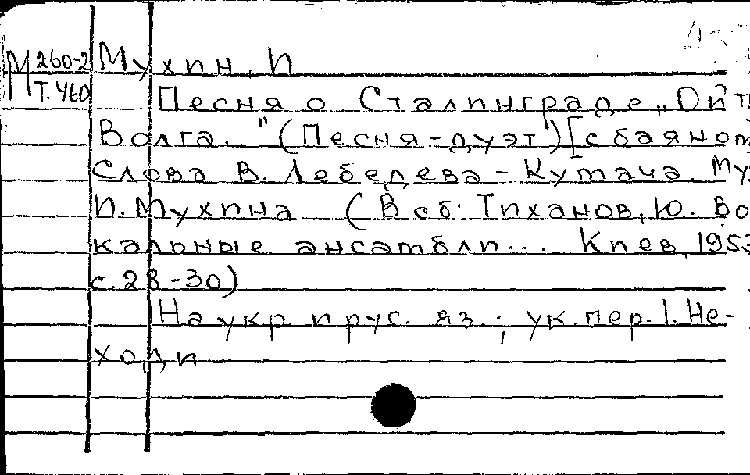 М 260-2 Мухин, И
Т. 460
Песня о Сталинграде „Ой т
Волга." (Песня-дуэт) [с баяном
Слова В. Лебедева-Кумача. Му
И. Мухина (В сб: Тиханов, Ю. Во
кальные ансамбли... Киев, 195
с. 28-30)
На укр и рус. яз.; ук. пер. І. Не-
ходи